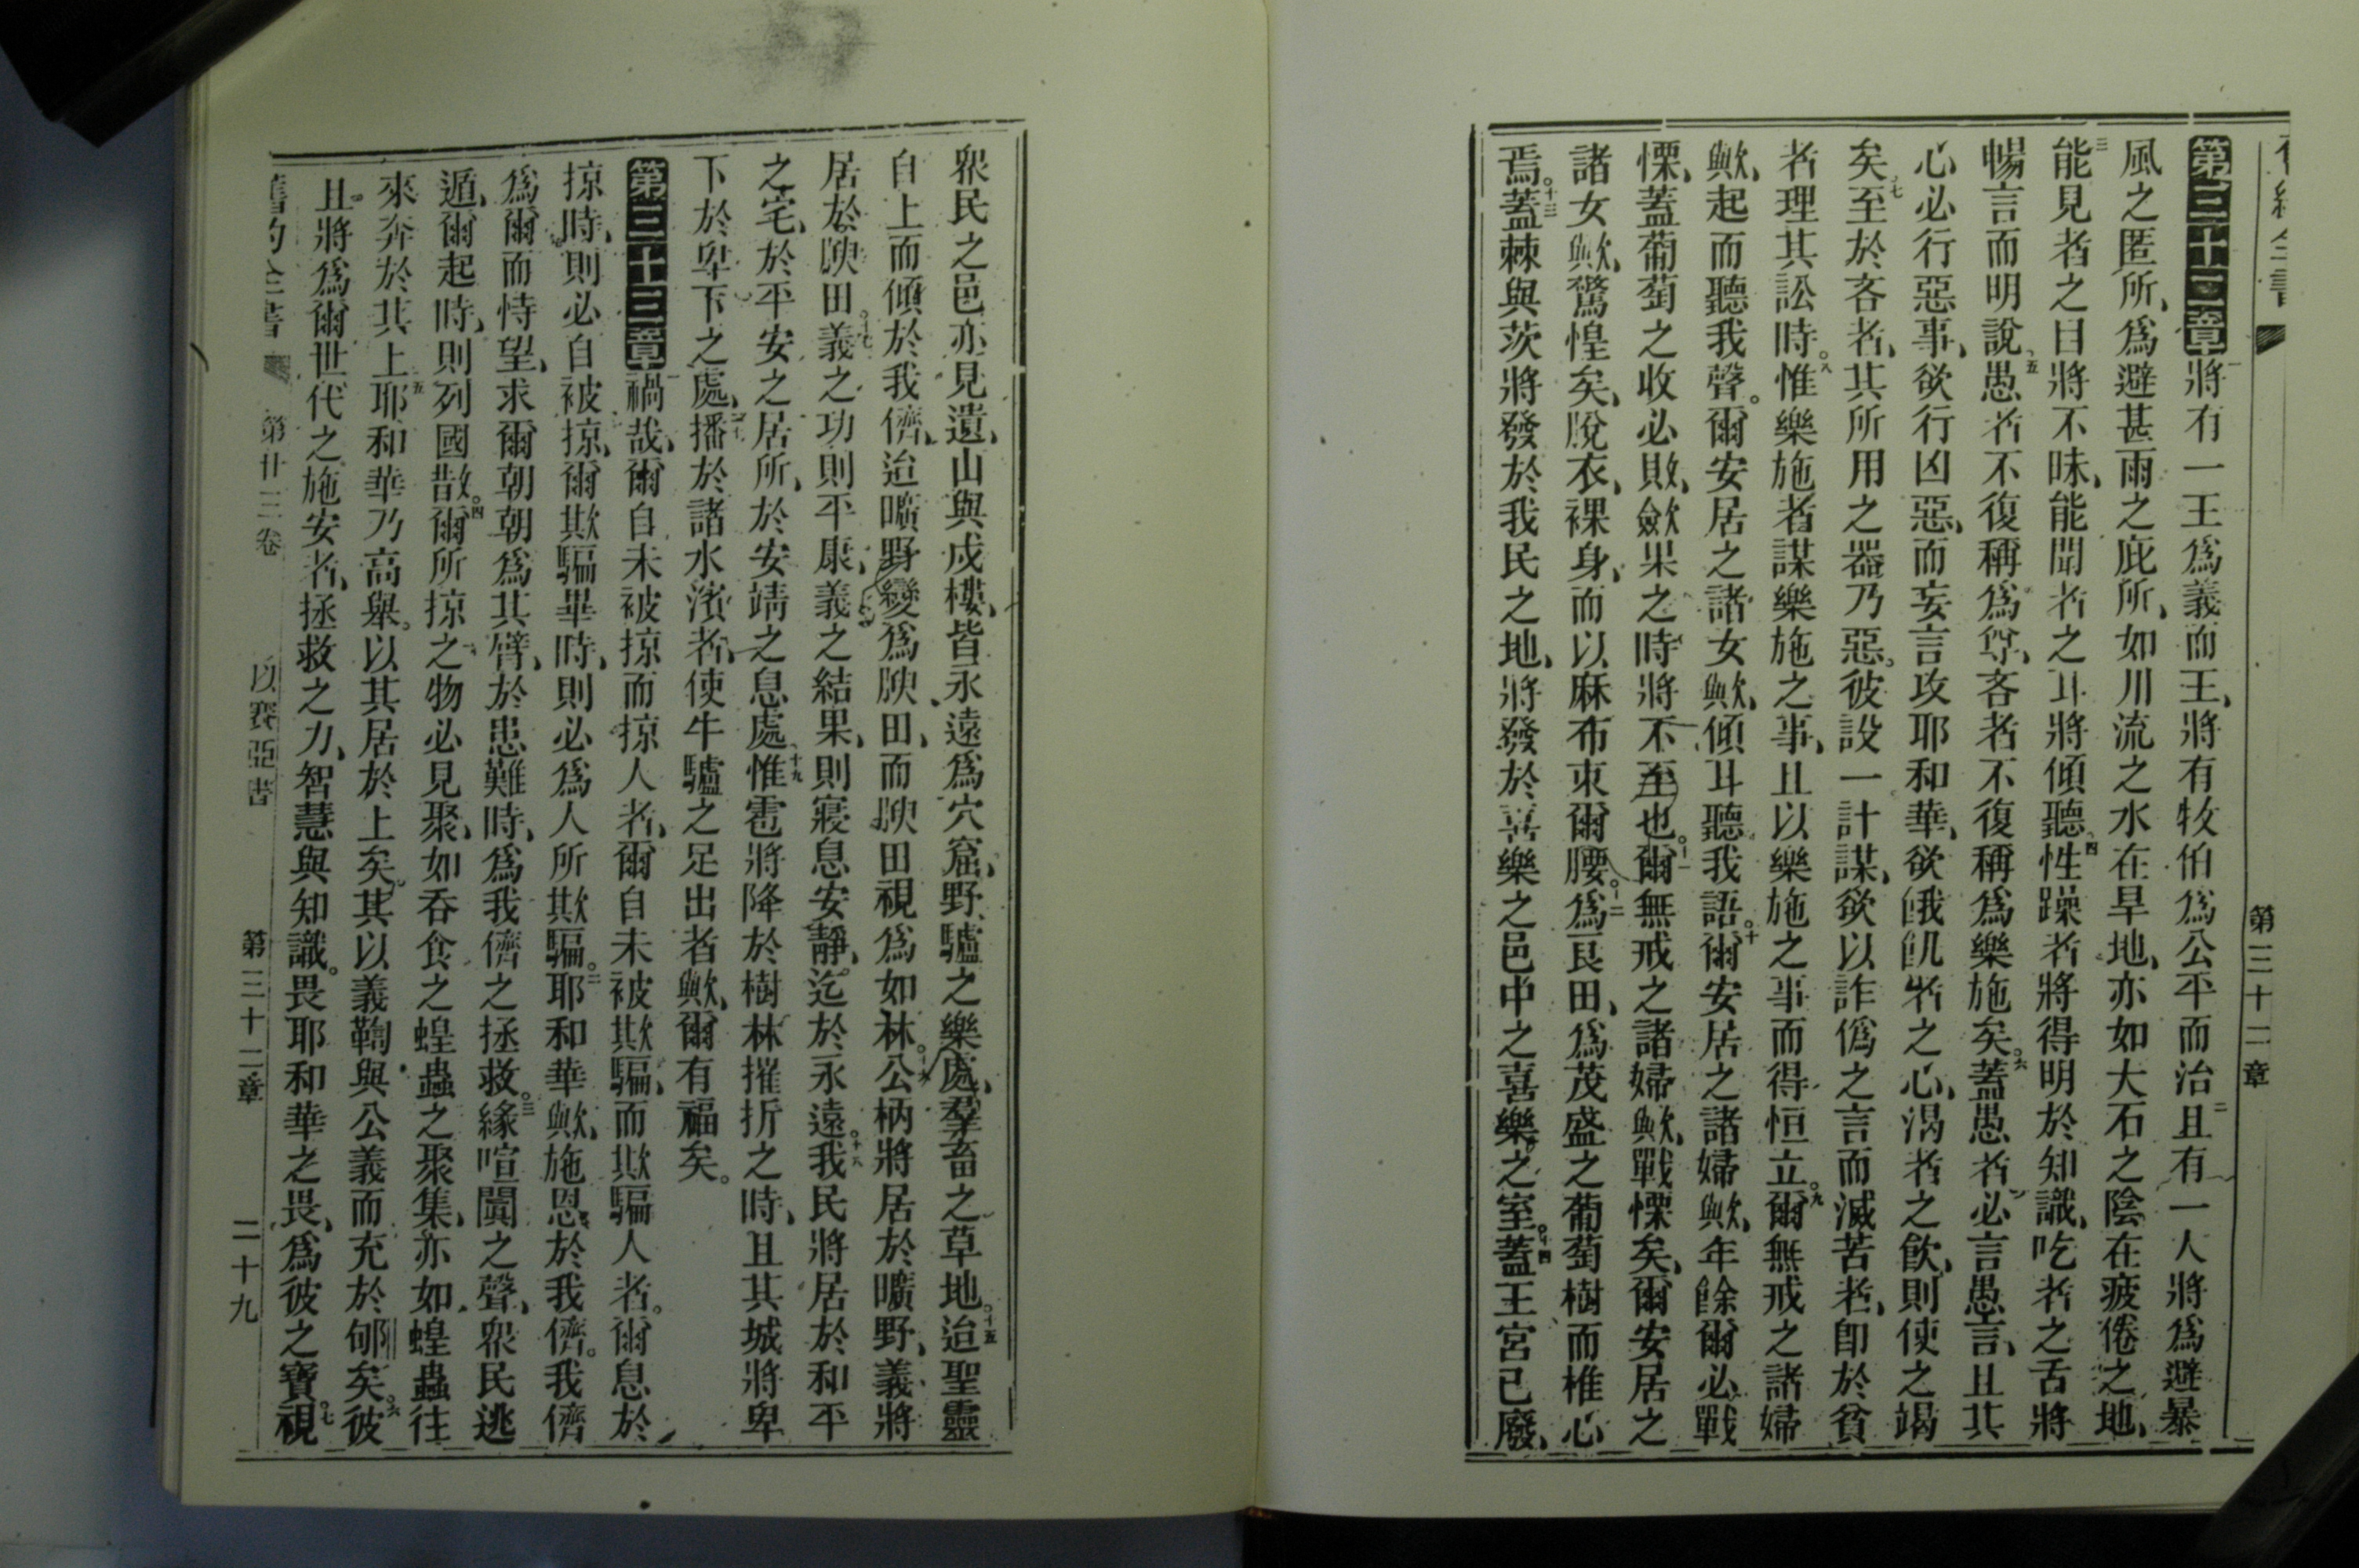 第三十二章
第三十二章將有一王爲義而王、將有牧伯爲公平而治二且有一人將爲避暴
風之匿所、爲避甚雨之庇所、如川流之水在旱地、亦如大石之陰在疲倦之地、
三能見者之目將不昧、能聞者之耳將傾聽、四性躁者將得明於知識、吃者之舌將
暢言而明說、五愚者不復稱爲尊、吝者不復稱爲樂施矣。六蓋愚者必言愚言、且其
心必行惡事、欲行凶惡、而妄言攻耶和華、欲餓飢者之心、渴者之飮、則使之竭
矣、七至於吝者、其所用之器乃惡。彼設一計謀、欲以詐僞之言而滅苦者、卽於貧
者理其訟時。八惟樂施者謀樂施之事、且以樂施之事而得恒立。九爾無戒之諸婦
歟、起而聽我聲。爾安居之諸女歟、傾耳聽我語。十爾安居之諸婦歟、年餘爾必戰
慄、蓋葡萄之收必敗、歛果之時將不至也。十一爾無戒之諸婦歟、戰慄矣、爾安居之
諸女歟、驚惶矣、脫衣、裸身、而以麻布束爾腰。十二爲良田、爲茂盛之葡萄樹而椎心
焉。十三蓋棘與茨將發於我民之地、將發於喜樂之邑中之喜樂之室。十四蓋王宮已廢、
衆民之邑亦見遺、山與戍樓、皆永遠爲穴窟、野驢之樂處、羣畜之草地。十五迨聖靈
自上而傾於我儕、迨曠野變爲腴田、而腴田視爲如林。十六公柄將居於曠野、義將
居於腴田。十七義之功則平康、義之結果、則寢息安靜、迄於永遠。十八我民將居於和平
之宅、於平安之居所、於安靖之息處、十九惟雹將降於樹林摧折之時、且其城將卑
下於卑下之處、二十播於諸水濱者、使牛驢之足出者歟、爾有福矣。
第三十三章一禍哉、爾自未被掠而掠人者、爾自未被欺騙、而欺騙人者。爾息於
掠時、則必自被掠、爾欺騙畢時、則必爲人所欺騙。二耶和華歟、施恩於我儕。我儕
爲爾而恃望、求爾朝朝爲其臂、於患難時、爲我儕之拯救。三緣喧闐之聲、衆民逃
遁、爾起時、則列國散。四爾所掠之物必見聚、如呑食之蝗蟲之聚集、亦如蝗蟲往
來奔於其上、五耶和華乃高舉。以其居於上矣、其以義鞫與公義而充於郇矣。六彼
且將爲爾世代之施安者、拯救之力、智慧與知識。畏耶和華之畏、爲彼之寶。七視
第廿三卷 以賽亞書 第三十二章 二十九